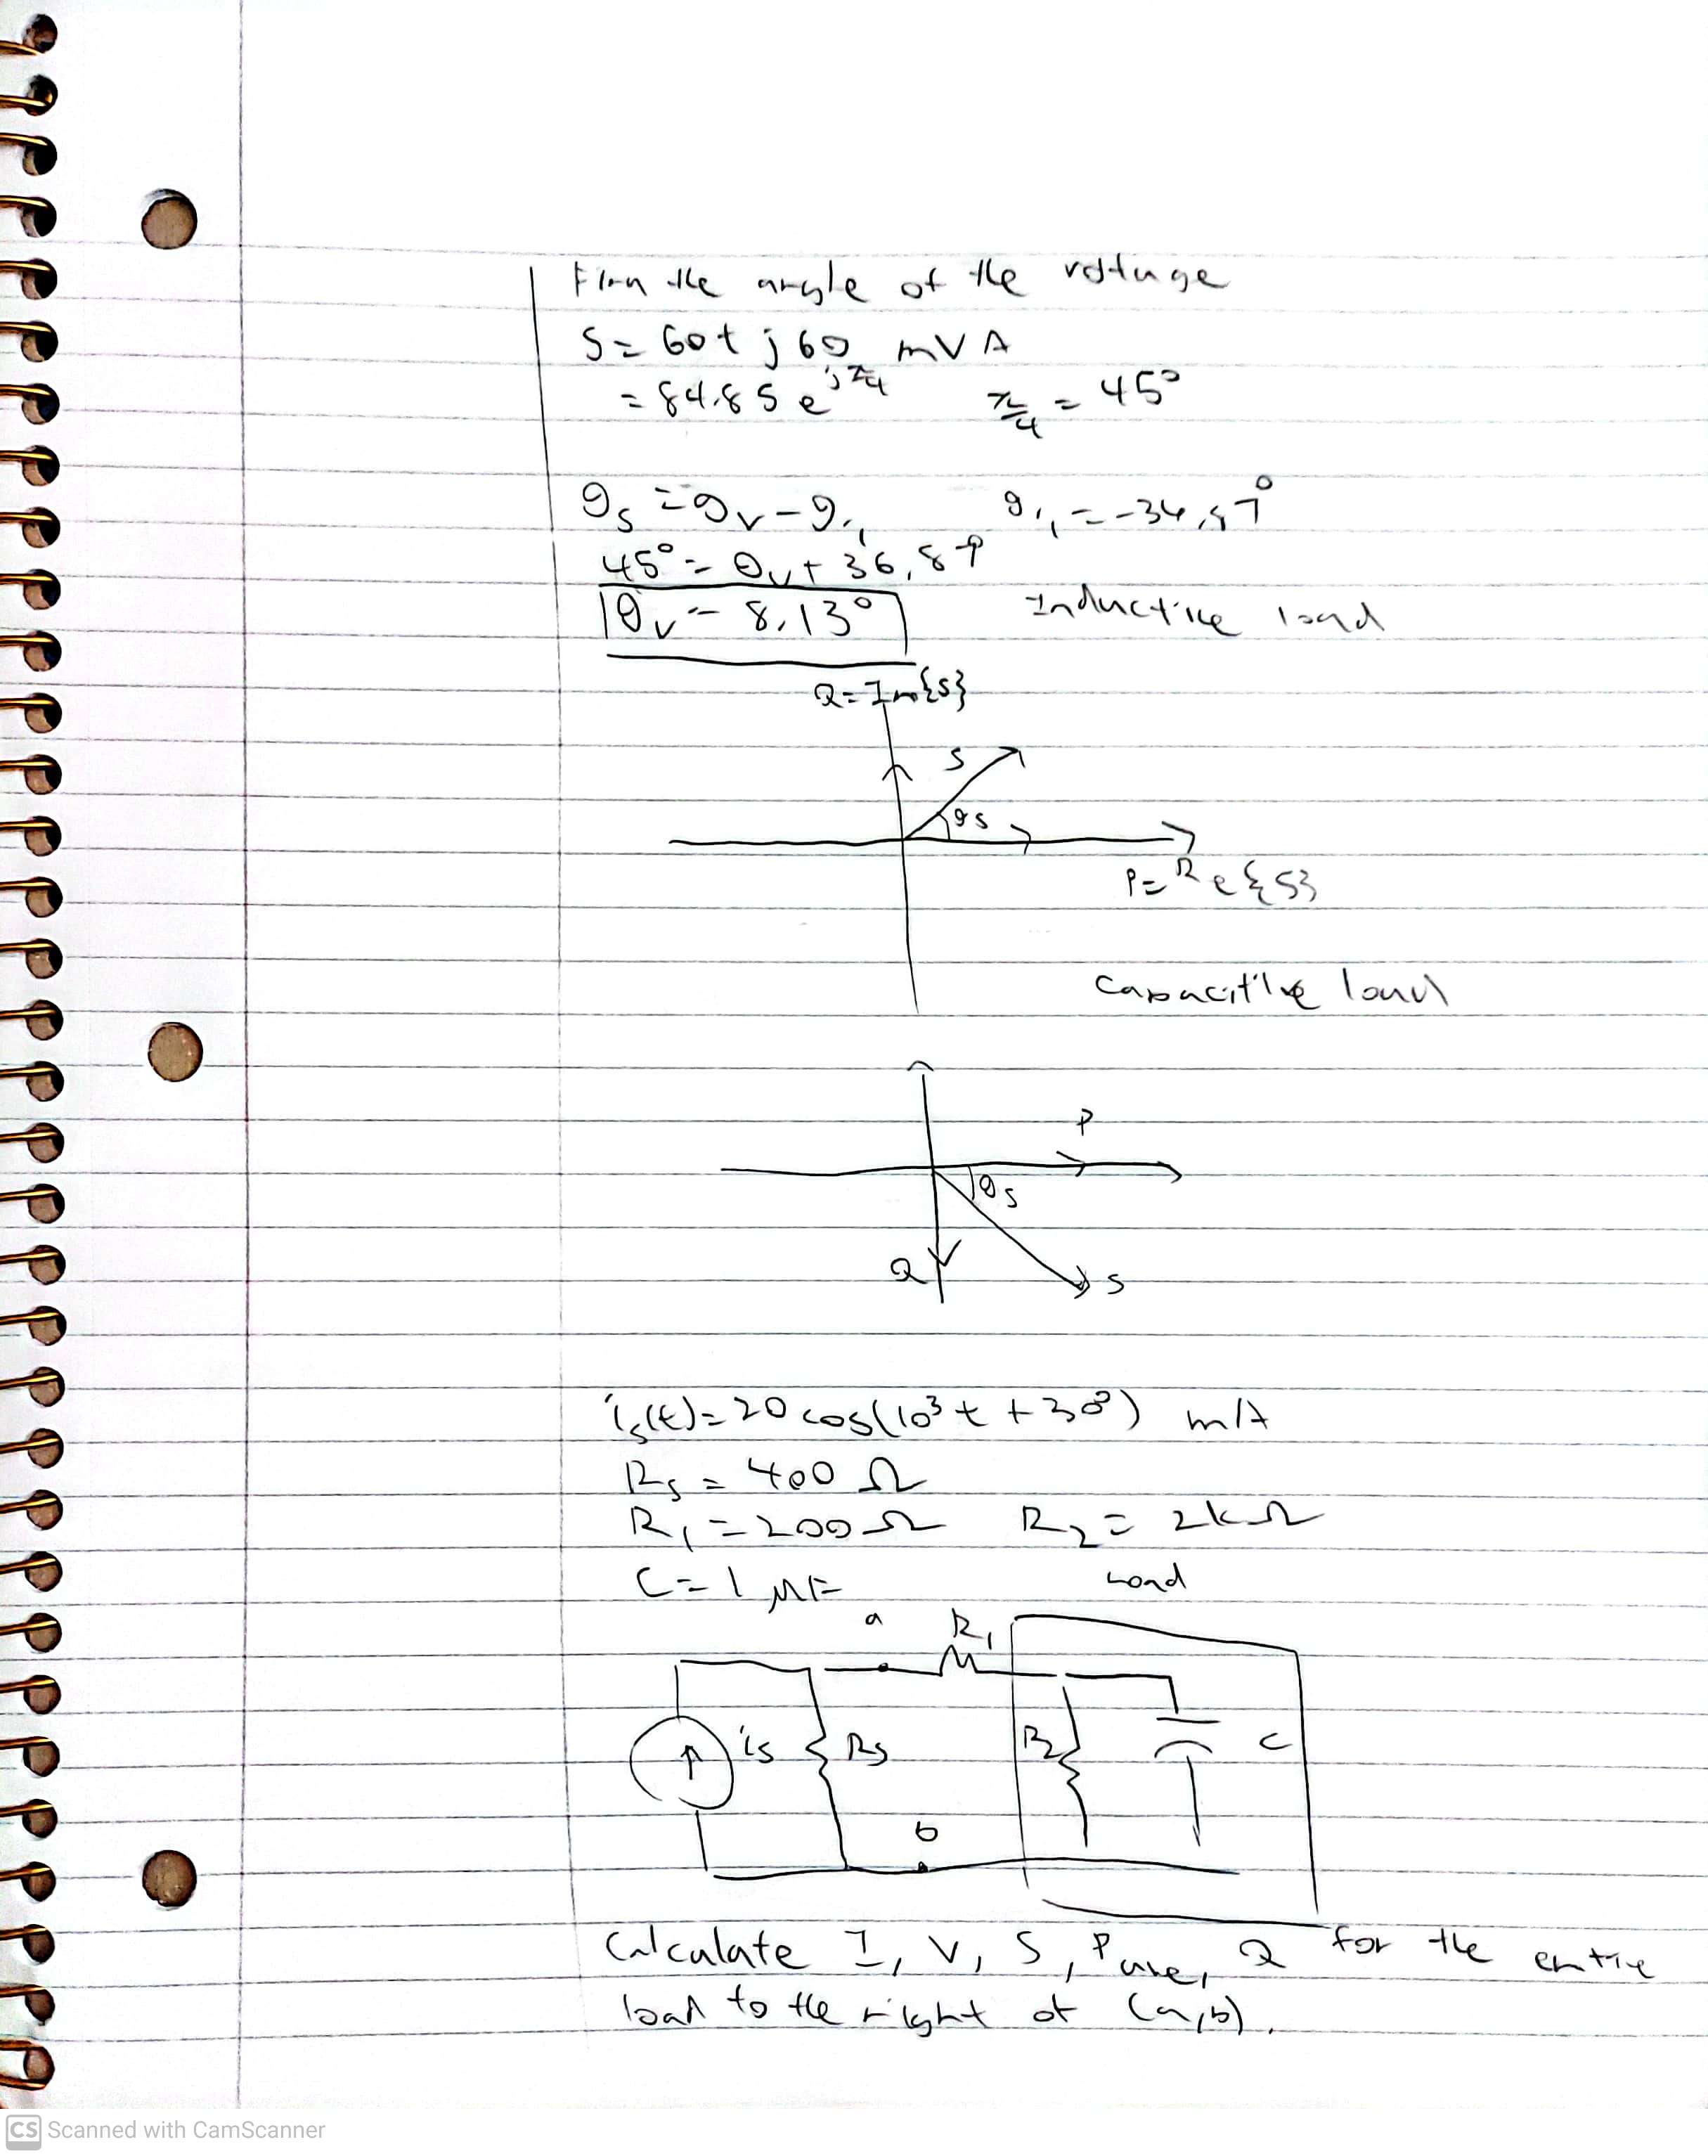 Find the angle of the voltage
S = 60 + j 60 mVA
= 84.85 e^{jπ/4} π/4 = 45°
θs = θv - θi, θi, = -36.87°
45° = θv + 36.87
θv = 8.13° Inductive load
Q = Im{S}
S
θs
P = Re{S}
Capacitive load
P
θs
Q S
is(t) = 20 cos(10³t + 30°) mA
Rs = 400 Ω
R1 = 200 Ω R2 = 2kΩ
C = 1 μF Load
a R1
is Rs R2 C
b
Calculate I, V, S, Pave, Q for the entire
load to the right of (a,b).
CS Scanned with CamScanner